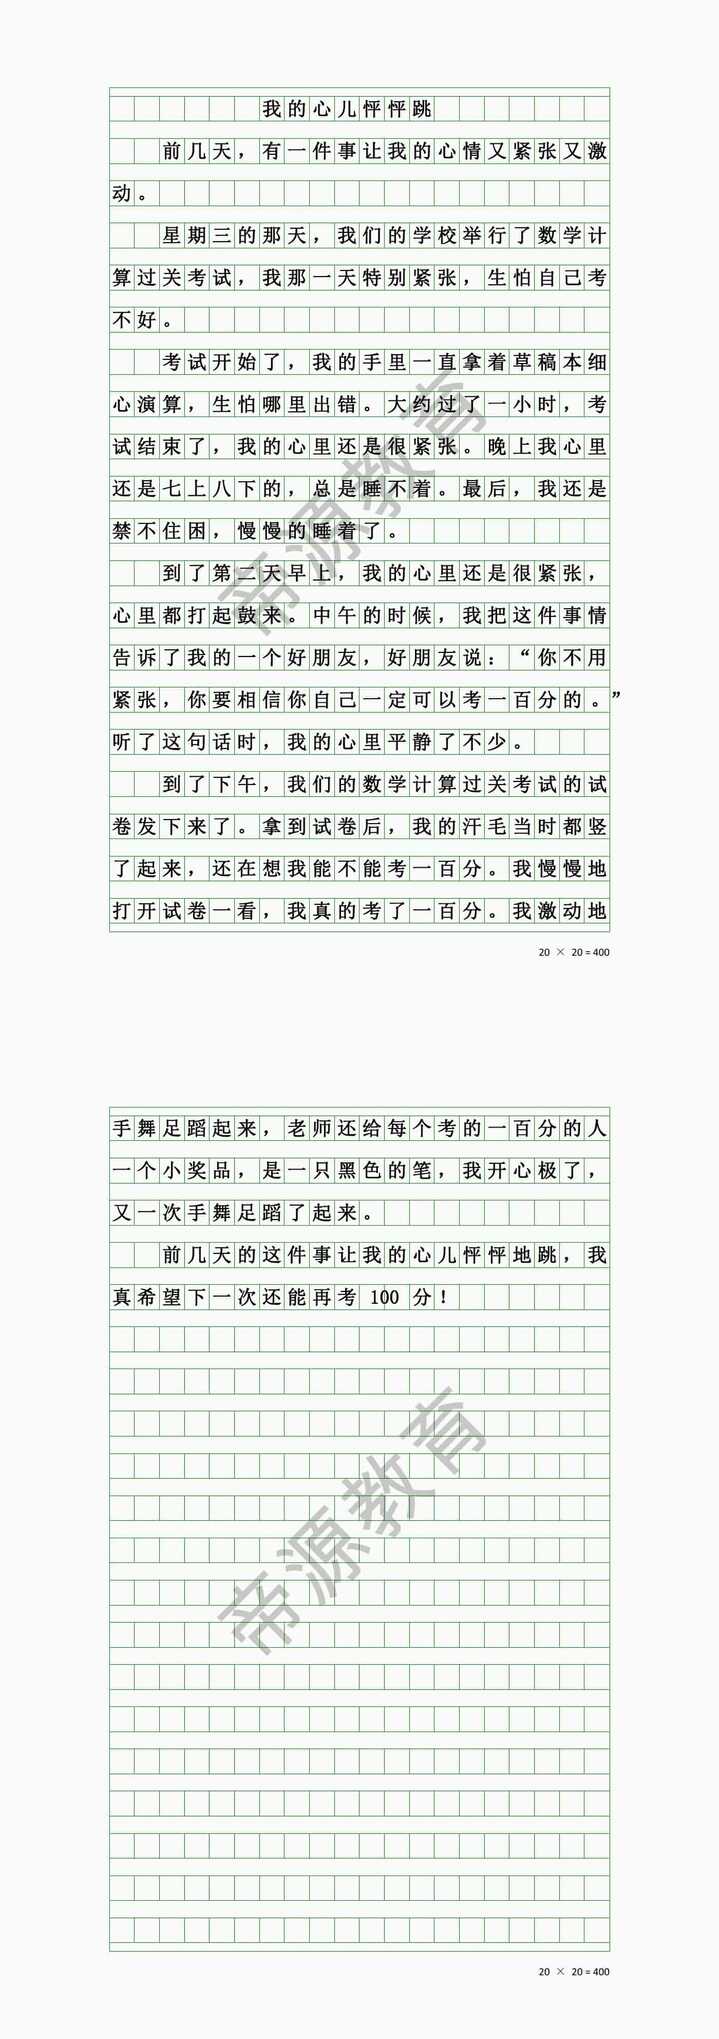 我的心儿怦怦跳
前几天，有一件事让我的心情又紧张又激
动。
星期三的那天，我们的学校举行了数学计
算过关考试，我那一天特别紧张，生怕自己考
不好。
考试开始了，我的手里一直拿着草稿本细
心演算，生怕哪里出错。大约过了一小时，考
试结束了，我的心里还是很紧张。晚上我心里
还是七上八下的，总是睡不着。最后，我还是
禁不住困，慢慢的睡着了。
到了第二天早上，我的心里还是很紧张，
心里都打起鼓来。中午的时候，我把这件事情
告诉了我的一个好朋友，好朋友说：“你不用
紧张，你要相信你自己一定可以考一百分的。”
听了这句话时，我的心里平静了不少。
到了下午，我们的数学计算过关考试的试
卷发下来了。拿到试卷后，我的汗毛当时都竖
了起来，还在想我能不能考一百分。我慢慢地
打开试卷一看，我真的考了一百分。我激动地
20 × 20 = 400
手舞足蹈起来，老师还给每个考的一百分的人
一个小奖品，是一只黑色的笔，我开心极了，
又一次手舞足蹈了起来。
前几天的这件事让我的心儿怦怦地跳，我
真希望下一次还能再考 100 分！
20 × 20 = 400
帝源教育
帝源教育